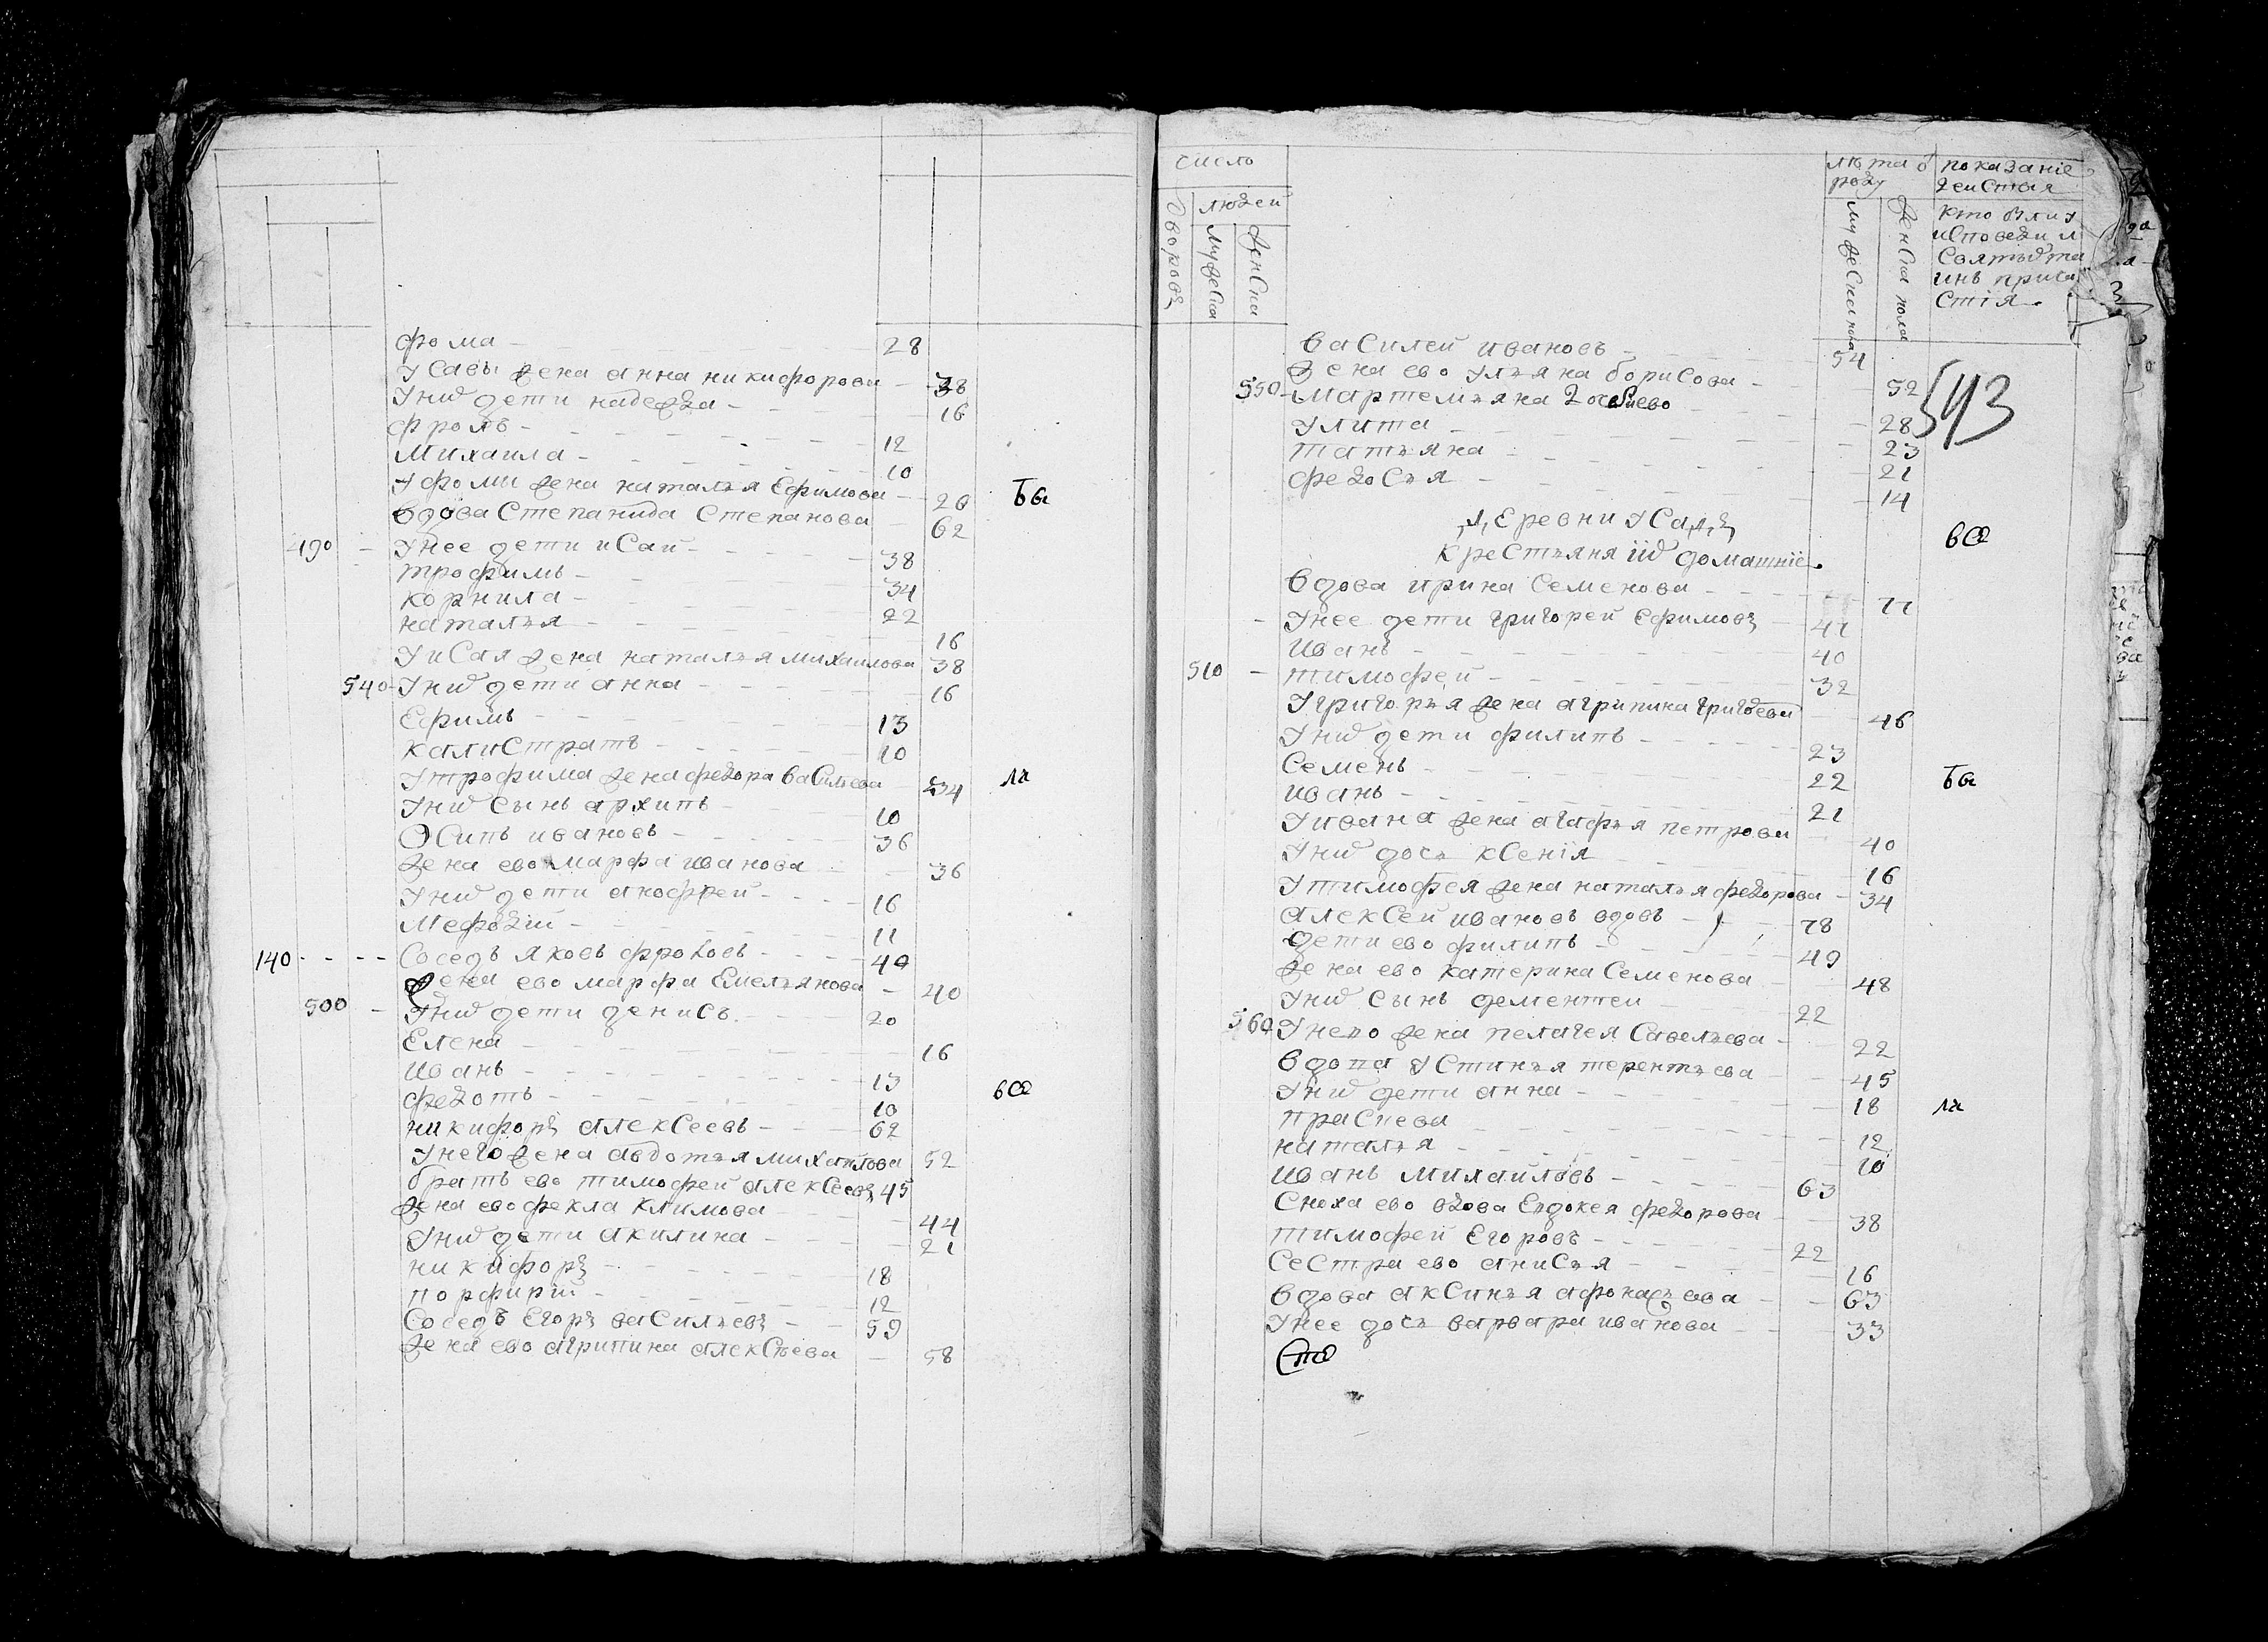 фома 28
У савы жена анна никифорова 38
У них дети надежда 16
фролъ 12
Михаила 10
У фомы жена наталья Ефимова 26 бы
вдова Степанида Степанова 62
490 У нее дети исаи 38
трофимъ 34
корнила 22
наталья 16
У исая жена наталья михаилова 38
540 У них дети анна 16
Ефимъ 13
калистратъ 10
У трофима жена федора васильева 34 ли
У них сынъ архипъ 10
Осипъ ивановъ 36
жена ево марфа иванова 36
У них дети анофрей 16
Мефодiй 11
140 Соседъ яковъ фроловъ 40
жена ево марфа Емельянова 40
500 У них дети денисъ 20
Елена 16
иванъ 13
федотъ 10 все
никифоръ алексеевъ 62
У него жена авдотья михаилова 52
братъ ево тимофей алексеевъ 45
жена ево фекла климова 44
У них дети акилина 21
никифоръ 18
порфирiй 12
Соседъ Егоръ васильевъ 59
жена ево агрипина алексеева 58
число
лѣта от роду
показанiе действа
дворовъ
людей
мужеска
женска
мужеска пола
женска пола
кто былъ у исповеди и святых таинъ причастiя
василей ивановъ 54
жена ево ульяна борисова 52
543
550 Мартемьяна 28
Улита 23
татьяна 21
федосья 14
деревни Усадъ
крестьяня и их домашнiе все
вдова ирина семенова 77
У нее дети григорей Ефимовъ 47
иванъ 40
510 тимофей 32
У григорья жена агрипина григорева 46
У них дети филипъ 23
Семенъ 22
иванъ 21 бы
У ивана жена агафья петрова 40
У них дочь ксенiя 16
У тимофея жена наталья федорова 34
алексей ивановъ вдовъ 78
дети ево филипъ 49
жена ево катерина Семенова 48
У них сынъ дементеи 22
560 У нево жена пелагея савельева 22
вдова Устинья терентьева 45
У них дети анна 18 ли
праскева 12
наталья 10
иванъ михайловъ 63
Сноха ево вдова Евдокея федорова 38
тимофей Егоровъ 22
Сестра ево анисья 16
вдова аксинья афонасьева 63
У нее дочь варвара иванова 33